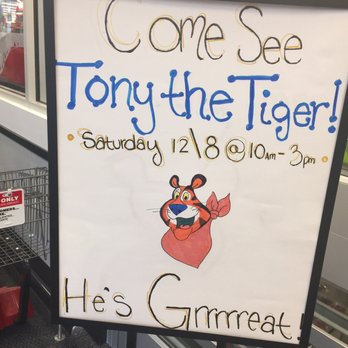 Come See
Tony the Tiger!
Saturday 12\8 @ 10am - 3pm
He's Grrrrreat!
ONLY